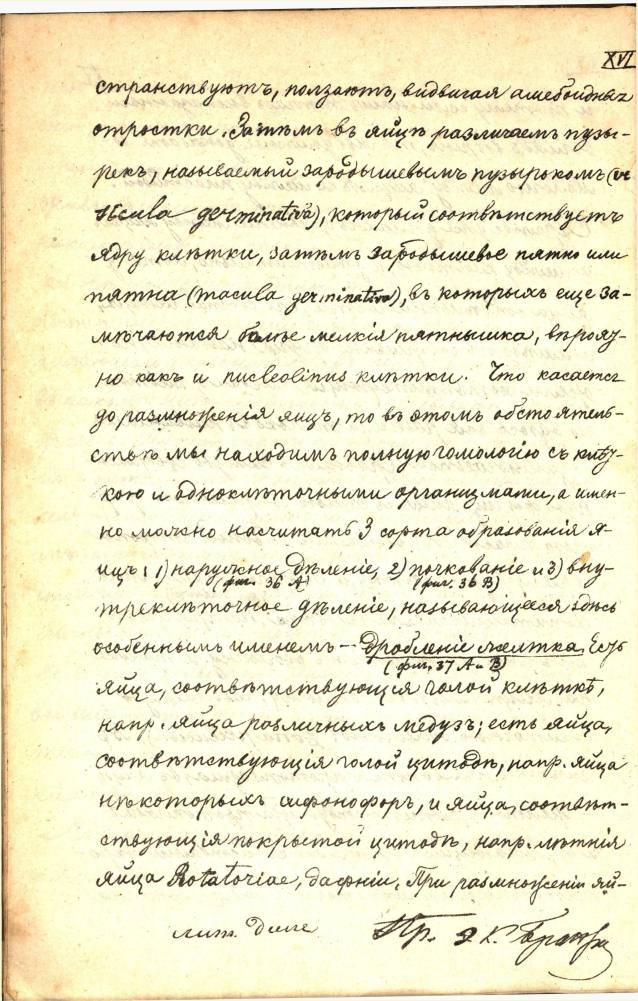 XVI
странствуютъ, ползаютъ, видвигая амебоидных
отростки. Затѣмъ въ яйцѣ различаем пузы-
рекъ, называемый зародышевымъ пузырькомъ (ve
sicula germinativa), который соотвѣтствуетъ
ядру клѣтки, затѣмъ зародышевое пятно или
пятна (macula germinativa), въ которыхъ еще за-
мѣчаются болѣе мелкія пятнышка, вѣрояз-
но какъ и nucleolinus клѣтки. Что касается
до размноженія яицъ, то въ этомъ обстоятель-
ствѣ мы находимъ полную гомологію съ клѣт-
кою и одноклѣточными организмами, а имен-
но можно насчитать 3 сорта образованія я-
ицъ: 1) наружное дѣленіе, 2) почкованіе и 3) вну-
(фиг. 36 А) (фиг. 36 В)
треклѣточное дѣленіе, называющееся здѣсь
особеннымъ именемъ — дробленіе желтка. Есть
(фиг. 37 А и В)
яйца, соотвѣтствующія голой клѣткѣ,
напр. яйца различныхъ медузъ; есть яйца,
соотвѣтствующія голой цитодѣ, напр. яйца
нѣкоторыхъ сифонофоръ, и яйца, соотвѣт-
ствующія покрытой цитодѣ, напр. лѣтнія
яйца Rotatoriae, дафніи. При размноженіи яй-
лит. Пр. Э. К.